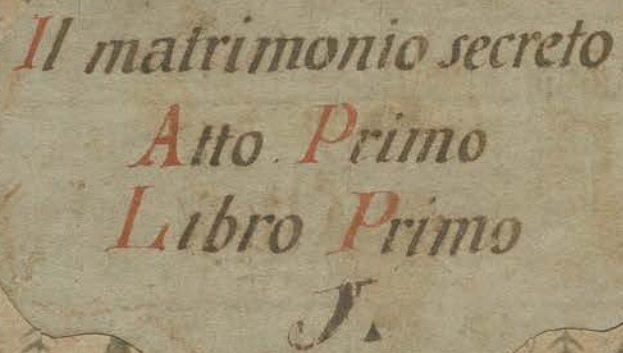 Il matrimonio secreto
Atto. Primo
Libro Primo
J.